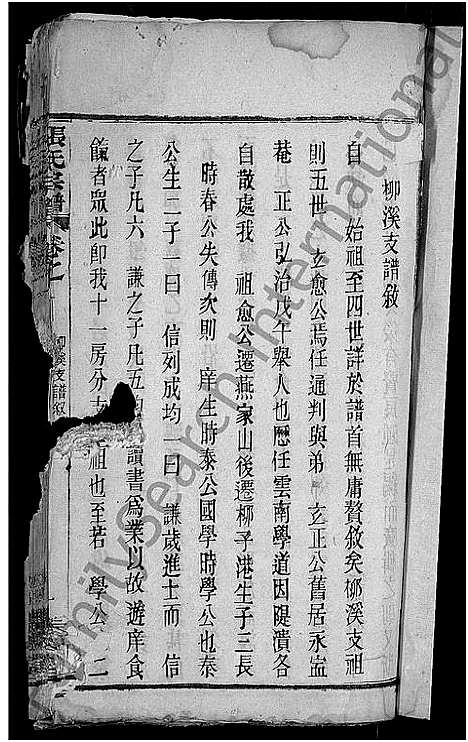 柳溪支譜敘
自 始祖至四世詳於譜首無庸贅敘矣柳溪支祖
則五世 玄愈公焉任通判與弟 玄正公舊居永盅
菴 正公弘治戊午舉人也歷任雲南學道因隄潰各
自散處我 祖愈公遷燕家山後遷柳子港生子三長
時春公失傳次則 庠生時泰公國學時學公也泰
公生二子一曰 信列成均一曰 謙歲進士而 信
之子凡六 謙之子凡五 讀書爲業以故遊庠食
餼者眾此卽我十一房分支 祖也至若 學公 二
張氏宗譜 卷之
柳溪支譜敘
一
FamilySearch International